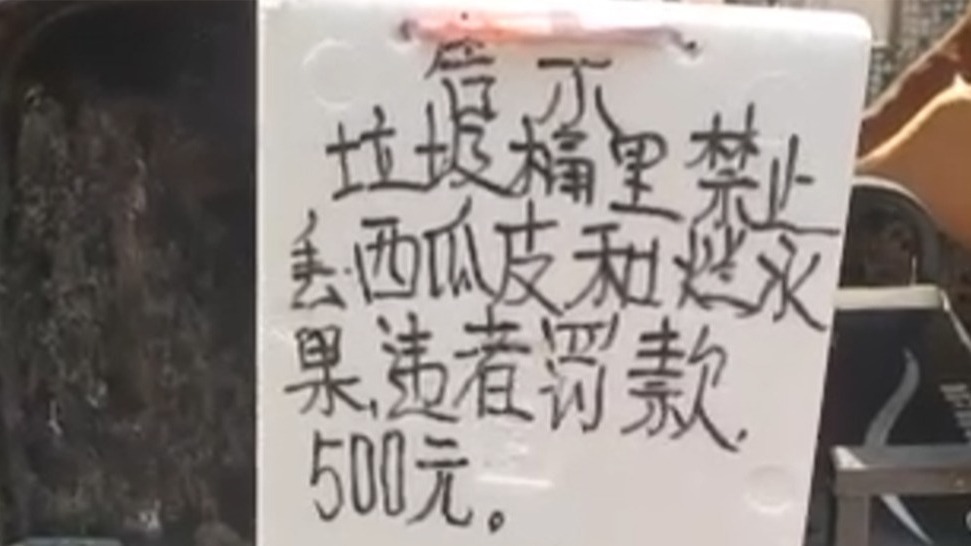 告示
垃圾桶里禁止
丢西瓜皮和烂水
果,违者罚款.
500元。